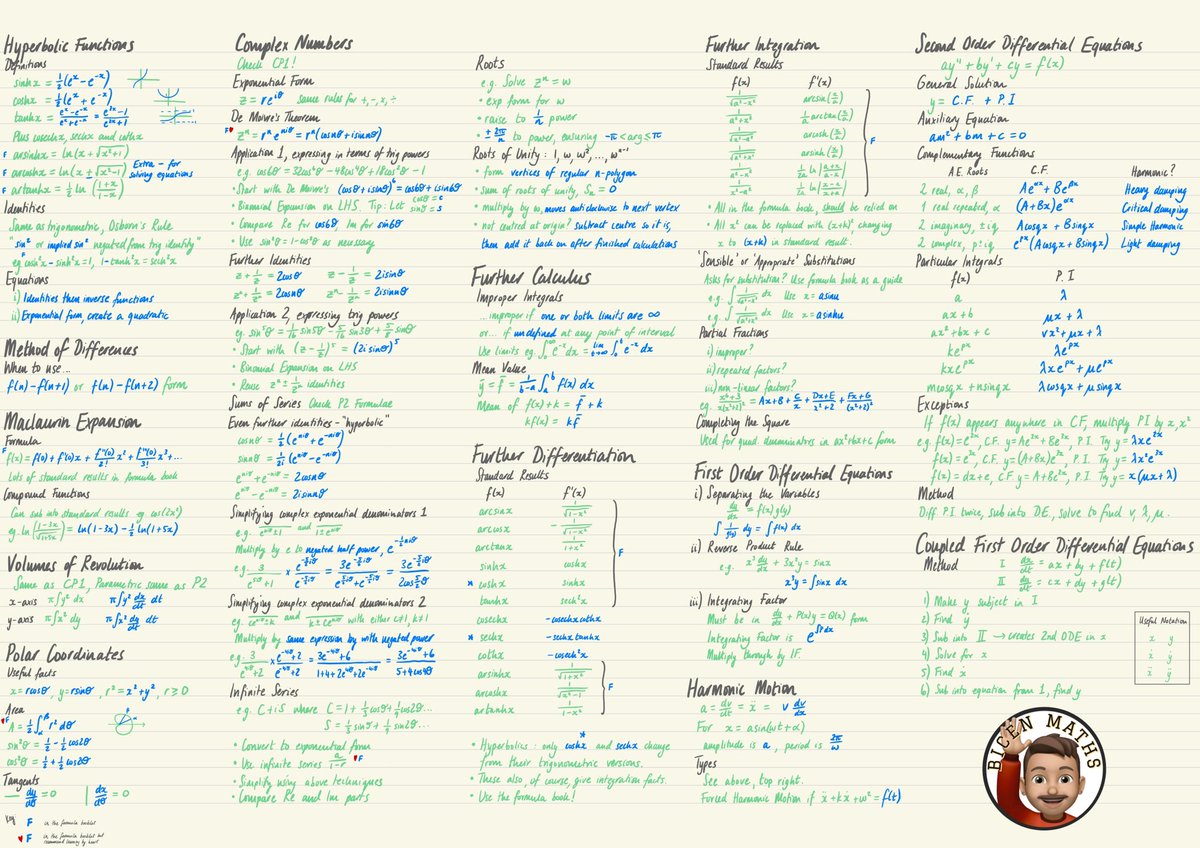 Hyperbolic Functions
Definitions
sinhx = ½(eˣ - e⁻ˣ)
coshx = ½(eˣ + e⁻ˣ)
tanhx = (eˣ-e⁻ˣ)/(eˣ+e⁻ˣ) = (e²ˣ-1)/(e²ˣ+1)
Plus cosechx, sechx and cothx
F arsinhx = ln(x+√(x²+1))
F arcoshx = ln(x ± √(x²-1)) Extra - for solving equations
F artanhx = ½ ln((1+x)/(1-x))
Identities
Same as trigonometric, Osborn's Rule
"sin² or implied sin² negated from trig identity"
F eg cosh²x - sinh²x = 1, 1-tanh²x = sech²x
Equations
i) Identities then inverse functions
ii) Exponential form, create a quadratic
Method of Differences
When to use...
f(n)-f(n+1) or f(n)-f(n+2) form
Maclaurin Expansion
Formula
F f(x) = f(0) + f'(0)x + f''(0)/2! x² + f'''(0)/3! x³...
Lots of standard results in formula book
Compound Functions
Can sub into standard results eg. cos(2x²)
eg. ln(√(1-3x)/√(1+5x)) = ln(1-3x) - ½ ln(1+5x)
Volumes of Revolution
Same as CP1, Parametric same as P2
x-axis π∫y² dx π∫y² dx/dt dt
y-axis π∫x² dy π∫x² dy/dt dt
Polar Coordinates
Useful facts
x = rcosθ, y = rsinθ, r² = x² + y², r ≥ 0
Area
♥F A = ½∫r² dθ
sin²θ = ½ - ½cos2θ
cos²θ = ½ + ½cos2θ
Tangents
— dy/dθ = 0 | dx/dθ = 0
Key F in the formula booklet
♥ F in the formula booklet but recommend learning by heart
Complex Numbers
Check CP1!
Exponential Form
z = re^(iθ) same rules for +, -, x, ÷
De Moivre's Theorem
F♥ zⁿ = rⁿe^(niθ) = rⁿ(cosnθ + isinnθ)
Application 1, expressing in terms of trig powers
e.g. cos6θ = 32cos⁶θ - 48cos⁴θ + 18cos²θ - 1
• Start with De Moivre's (cosθ + isinθ)⁶ = cos6θ + isin6θ
• Binomial Expansion on LHS. Tip: Let cosθ = c sinθ = s
• Compare Re for cos6θ, Im for sin6θ
• Use sin²θ = 1 - cos²θ as necessary
Further Identities
z + 1/z = 2cosθ z - 1/z = 2isinθ
zⁿ + 1/zⁿ = 2cosnθ zⁿ - 1/zⁿ = 2isinnθ
Application 2, expressing trig powers
eg. sin⁵θ = 1/16 sin5θ - 5/16 sin3θ + 5/8 sinθ
• Start with (z - 1/z)⁵ = (2isinθ)⁵
• Binomial Expansion on LHS
• Reuse zⁿ ± 1/zⁿ identities
Sums of Series Check P2 Formulae
Even further identities - "hyperbolic"
cosnθ = ½(e^(niθ) + e^(-niθ))
sinnθ = 1/2i (e^(niθ) - e^(-niθ))
e^(niθ) + e^(-niθ) = 2cosnθ
e^(niθ) - e^(-niθ) = 2isinnθ
Simplifying complex exponential denominators 1
e.g. 1/(e^(niθ)±1) and 1/(1±e^(niθ))
Multiply by e to negated half power, e^(-½niθ)
e.g. 3/(e^(5iθ)+1) × e^(-5/2 iθ)/e^(-5/2 iθ) = 3e^(-5/2 iθ)/(e^(5/2 iθ)+e^(-5/2 iθ)) = 3e^(-5/2 iθ)/2cos 5/2 θ
Simplifying complex exponential denominators 2
eg. 1/(ce^(niθ)±k) and 1/(k±ce^(niθ)) with either c≠1, k≠1
Multiply by same expression by with negated power
e.g. 3/(e^(4iθ)+2) × (e^(-4iθ)+2)/(e^(-4iθ)+2) = (3e^(-4iθ)+6)/(1+4+2e^(4iθ)+2e^(-4iθ)) = (3e^(-4iθ)+6)/(5+4cos4θ)
Infinite Series
e.g. C+iS where C = 1 + ⅓cosθ + 1/9 cos2θ...
S = ⅓sinθ + 1/9 sin2θ...
• Convert to exponential form
• Use infinite series a/(1-r) ♥F
• Simplify using above techniques
• Compare Re and Im parts
Roots
e.g. Solve zⁿ = w
• exp form for w
• raise to 1/n power
• ± 2π/n to power, ensuring -π < arg ≤ π
Roots of Unity: 1, w, w², ..., wⁿ⁻¹
• form vertices of regular n-polygon
• sum of roots of unity, Sn = 0
• multiply by w, moves anticlockwise to next vertex
• not centred at origin? subtract centre so it is,
then add it back on after finished calculations
Further Calculus
Improper Integrals
...improper if one or both limits are ∞
or... if undefined at any point of interval
Use limits eg. ∫₀^∞ e⁻ˣ dx = lim t→∞ ∫₀ᵗ e⁻ˣ dx
Mean Value
ȳ = f̄ = 1/(b-a) ∫ₐᵇ f(x) dx
Mean of f(x)+k = f̄ + k
kf(x) = kf̄
Further Differentiation
Standard Results
f(x) f'(x)
arcsinx 1/√(1-x²)
arccosx -1/√(1-x²)
arctanx 1/(1+x²)
sinhx coshx F
* coshx sinhx
tanhx sech²x
cosechx -cosechxcothx
* sechx -sechxtanhx
cothx -cosech²x
arsinhx 1/√(1+x²)
arcoshx 1/√(x²-1) F
artanhx 1/(1-x²)
• Hyperbolics: only coshx* and sechx change
from their trigonometric versions.
• These also, of course, give integration facts.
• Use the formula book!
Further Integration
Standard Results
f(x) f'(x)
1/√(a²-x²) arcsin(x/a)
1/(a²+x²) 1/a arctan(x/a)
1/√(x²-a²) arcosh(x/a) F
1/√(a²+x²) arsinh(x/a)
1/(a²-x²) 1/2a ln|(a+x)/(a-x)|
1/(x²-a²) 1/2a ln|(x-a)/(x+a)|
• All in the formula book, should be relied on
• All x² can be replaced with (x+k)² changing
x to (x+k) in standard result.
'Sensible' or 'Appropriate' Substitutions
Asks for substitution? Use formula book as a guide
e.g. ∫ 1/√(a²-x²) dx Use x = asinu
e.g. ∫ 1/√(a²+x²) dx Use x = asinhu
Partial Fractions
i) improper?
ii) repeated factors?
iii) non-linear factors?
eg. Ax+B + C/x + (Dx+E)/(x²+2) + (Fx+G)/(x²+2)²
Completing the Square
Used for quad. denominators in ax²+bx+c form
First Order Differential Equations
i) Separating the Variables
dy/dx = f(x)g(y)
∫ 1/g(y) dy = ∫f(x) dx
ii) Reverse Product Rule
e.g. x³ dy/dx + 3x²y = sinx
x³y = ∫sinx dx
iii) Integrating Factor
Must be in dy/dx + P(x)y = Q(x) form
Integrating Factor is e^(∫P dx)
Multiply through by IF.
Harmonic Motion
a = dv/dt = ẍ = v dv/dx
For x = asin(ωt+α)
amplitude is a, period is 2π/ω
Types
See above, top right.
Forced Harmonic Motion if ẍ + kẋ + ω² = f(t)
Second Order Differential Equations
ay'' + by' + cy = f(x)
General Solution
y = C.F. + P.I
Auxiliary Equation
am² + bm + c = 0
Complementary Functions
A.E. Roots C.F. Harmonic?
2 real, α, β Ae^(αx) + Be^(βx) Heavy damping
1 real repeated, α (A+Bx)e^(αx) Critical damping
2 imaginary, ±iq Acosqx + Bsinqx Simple Harmonic
2 complex, p±iq e^(px)(Acosqx + Bsinqx) Light damping
Particular Integrals
f(x) P.I
a λ
ax + b μx + λ
ax² + bx + c νx² + μx + λ
ke^(px) λe^(px)
kxe^(px) λxe^(px) + μe^(px)
mcosqx + nsinqx λcosqx + μsinqx
Exceptions
If f(x) appears anywhere in CF, multiply P.I by x, x²
e.g. f(x) = e²ˣ, C.F. y = Ae²ˣ + Be³ˣ, P.I. Try y = λxe²ˣ
f(x) = e³ˣ, C.F. y = (A+Bx)e³ˣ, P.I. Try y = λx²e³ˣ
f(x) = dx+e, C.F. y = A+Be²ˣ, P.I. Try y = x(μx+λ)
Method
Diff P.I twice, sub into DE, solve to find ν, λ, μ.
Coupled First Order Differential Equations
Method I dx/dt = ax + by + f(t)
II dy/dt = cx + dy + g(t)
1) Make y subject in I
2) Find ẏ
3) Sub into II → creates 2nd ODE in x
4) Solve for x
5) Find ẋ
6) Sub into equation from 1, find y
Useful Notation
x y
ẋ ẏ
ẍ ÿ
BICEN MATHS